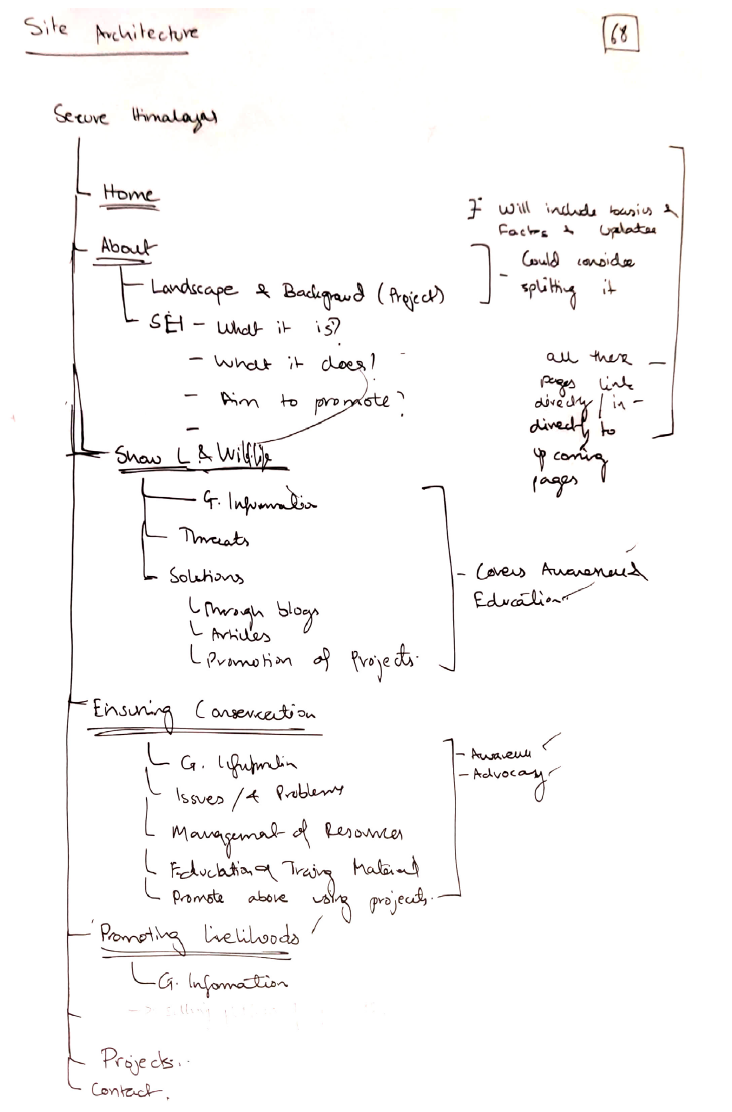 Site Architecture
68
Secure Himalayas
Home
} Will include basics &
Facts & updates
About
Landscape & Background (Project)
Could consider
- splitting it
SEH - What it is?
- What it does?
- Aim to promote?
-
all these
pages link
directly / in-
directly to
upcoming
pages
Snow L & Wildlife
G. Information
Threats
Solutions
Through blogs
Articles
Promotion of Projects.
- Covers Awareness
Education
Ensuring Conservation
G. Information
Issues / & Problems
Management of Resources
Education & Traing Material
Promote above using projects.
- Awareness
- Advocacy
Promoting livelihoods
G. Information
Projects..
Contact.